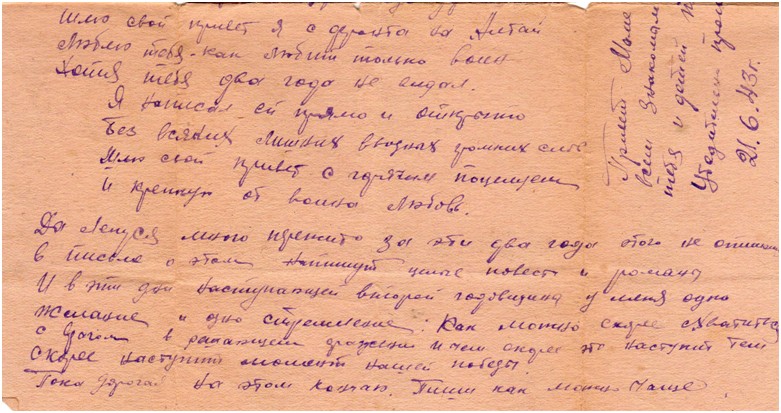 Шлю свой привет я с фронта на Алтай
Люблю тебя - как любит только воин
Хотя тебя два года не видал.
Я написал ей прямо и открыто
Без всяких лишних вводных громких слов
Шлю свой привет с горячим поцелуем
И крепкую от воина любовь.
Да Ленуся много прежито за эти два года этого не опишешь
в письме о этом напишут целые повести и романы
И в эти дни наступающей второй годовщины у меня одно
желание и одно стремление: Как можно скорее схватиться
с врагом в решающем сражении и чем скорее это наступит тем
скорее наступит момент нашей победы.
Пока дорогая на этом кончаю. Пиши как можно чаще
Привет Маме
всем знакомым
тебя и детей
21.6.43г.